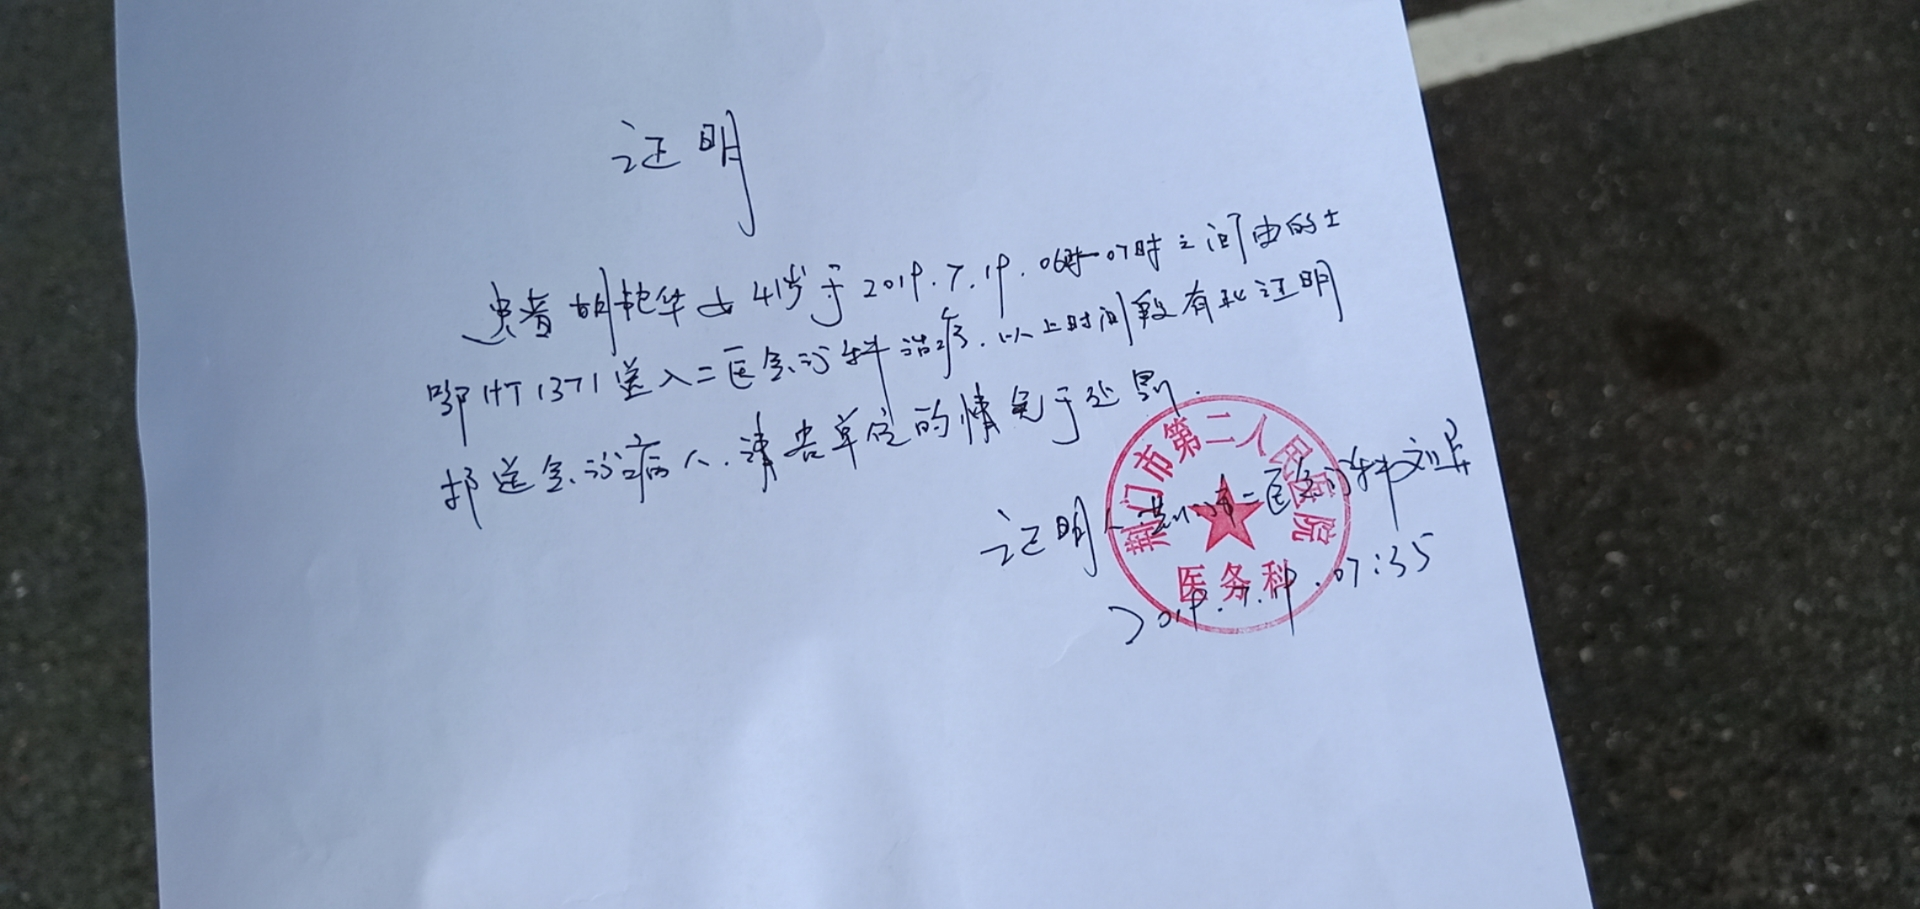 证明
患者胡艳华 女 41岁于2019.7.19.06时-07时之间由的士
鄂HT1371送入二医急诊科治疗.以上时间段有此证明
护送急诊病人.请贵单位酌情免于处罚.
证明人:荆门市二医急诊科刘异
2019.7.19.07:35
荆门市第二人民医院
医务科